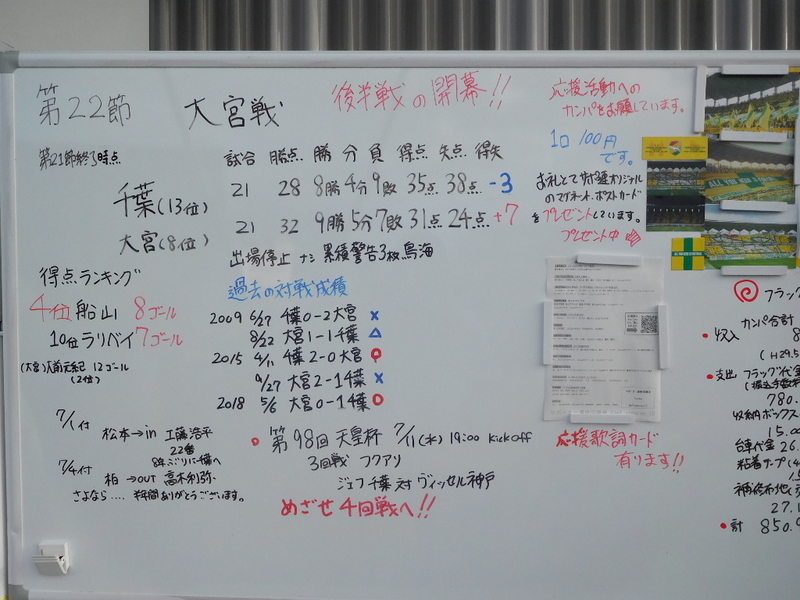 第22節
大宮戦
後半戦の開幕!!
第21節終了時点
試合 勝点 勝 分 負 得点 失点 得失
千葉(13位) 21 28 8勝 4分 9敗 35点 38点 -3
大宮(8位) 21 32 9勝 5分 7敗 31点 24点 +7
出場停止 ナシ 累積警告3枚 鳥海
得点ランキング
4位 船山 8ゴール
10位 ラリベイ 7ゴール
(大宮) 大前元紀 12ゴール
(2位)
過去の対戦成績
2009 6/27 千葉 0-2 大宮 ×
8/22 大宮 1-1 千葉 △
2015 4/11 千葉 2-0 大宮 ○
9/27 大宮 2-1 千葉 ×
2018 5/6 大宮 0-1 千葉 ○
7/1付 松本→in 工藤浩平
22番
8年ぶりに千葉へ
7/4付 柏→out 高木利弥
さよなら.... 半年間ありがとうございます。
第98回 天皇杯 7/11(水) 19:00 Kick off
3回戦 フクアリ
ジェフ千葉 対 ヴィッセル神戸
めざせ4回戦へ!!
応援活動への
カンパをお願しています。
1口 100円
です。
お礼として
オリジナル
のマグネット、ポストカード
をプレゼントしています。
プレゼント中
応援歌詞カード
有ります!!
フラッグ
カンパ合計
収入 8
(H29.5
支出 フラッグ代金
780.
収納ボックス
15.00
台車代金 26.
粘着テープ
27.1
計 850.9